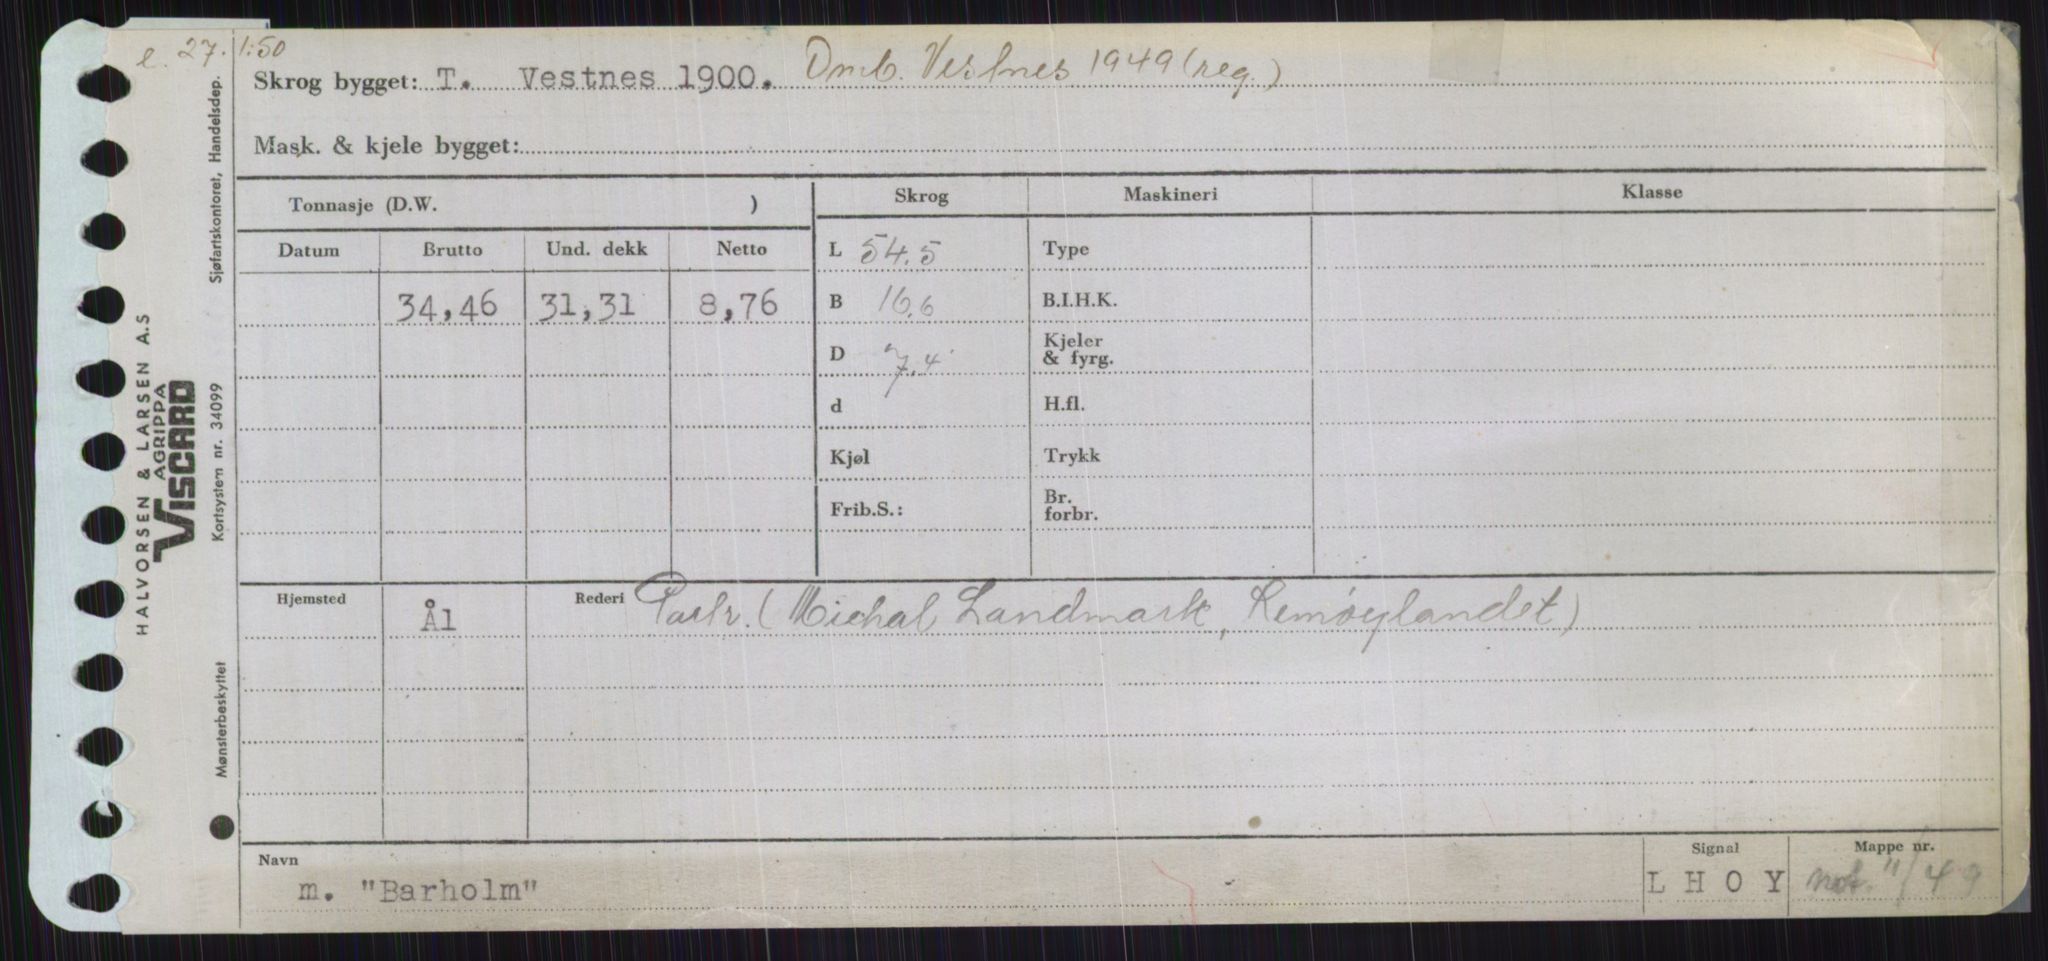 e. 27. 1:50
Skrog bygget: T. Vestnes 1900. Omb. Vestnes 1949 (reg.)
Mask. & kjele bygget:
Tonnasje (D.W. )
Skrog Maskineri Klasse
Datum Brutto Und. dekk Netto
L 54.5 Type
34,46 31,31 8,76
B 16.6 B.I.H.K.
D 7.4 Kjeler & fyrg.
d H.fl.
Kjøl Trykk
Frib.S.: Br. forbr.
Hjemsted Ål Rederi Partr. (Michal Landmark, Remøylandet)
Navn Signal Mappe nr.
m. "Barholm" L H O Y not. 11/49
HALVORSEN & LARSEN A.S
AGRIPPA
VISCARD
Sjøfartskontoret, Handelsdep.
Kortsystem nr. 34099
Mønsterbeskyttet